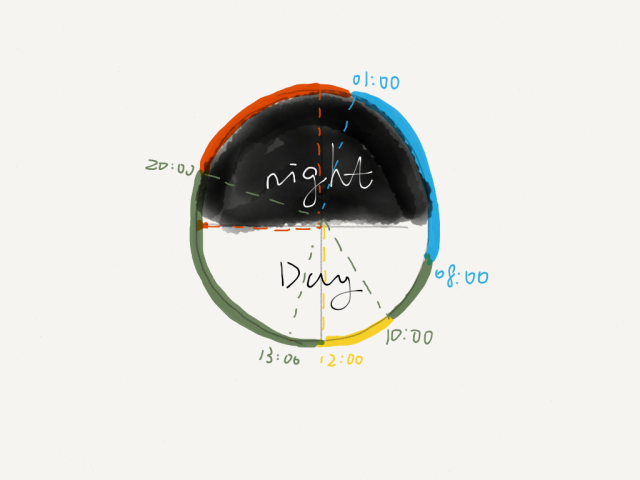 01:00
20:00
night
Day
08:00
10:00
13:00
12:00